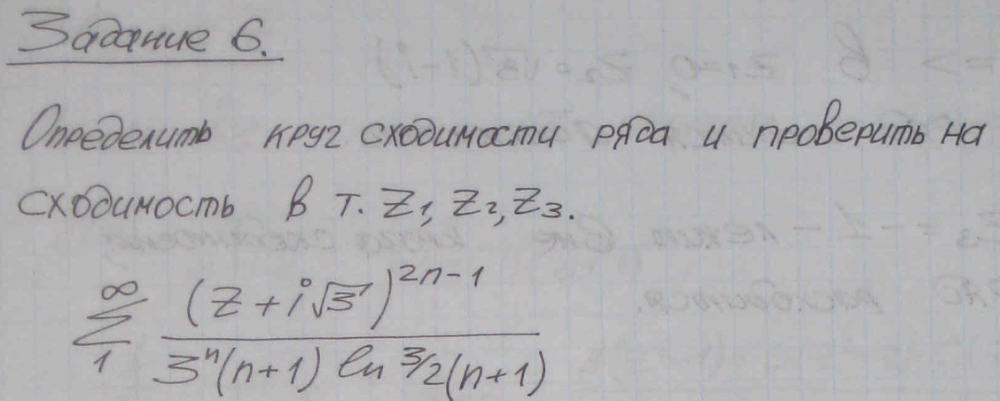 Задание 6.
Определить круг сходимости ряда и проверить на
сходимость в т. Z1, Z2, Z3.
∞ (Z + i√3)^2n-1
Σ
1 3^n(n+1) ln 3/2(n+1)